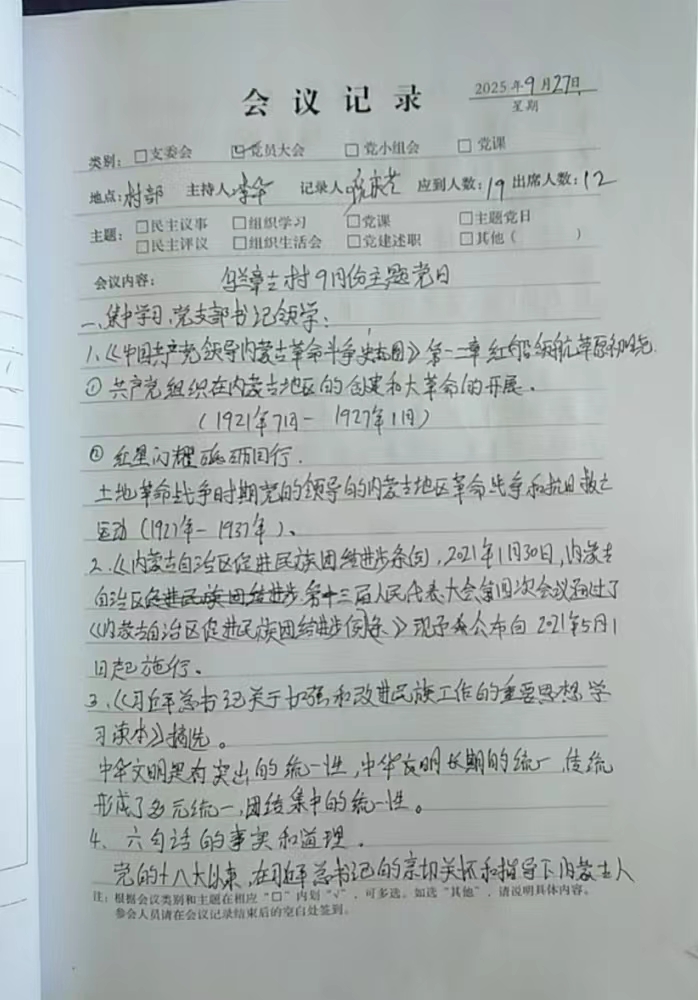 会议记录
2025年9月27日
星期
类别：□支委会 ☑党员大会 □党小组会 □党课
地点：村部 主持人：李华 记录人： 应到人数：19 出席人数：12
主题：□民主议事 □组织学习 □党课 □主题党日
□民主评议 □组织生活会 □党建述职 □其他（ ）
会议内容： 村9月份主题党日
一、集中学习，党支部书记领学：
1、《中国共产党领导内蒙古革命斗争史 》第一二章红船领航草原初晓.
① 共产党组织在内蒙古地区的创建和大革命的开展.
（1921年7月－1927年1月）
② 红星闪耀砥砺前行.
土地革命战争时期党的领导的内蒙古地区革命战争和抗日救亡
运动（1927年－1937年）、
2、《内蒙古自治区促进民族团结进步条例，2021年1月30日，内蒙古
自治区促进民族团结进步第十三届人民代表大会第四次会议通过了
《内蒙古自治区促进民族团结进步 条》现予 公布自2021年5月1
日起施行。
3、《习近平总书记关于加强和改进民族工作的重要思想学
习读本》摘选。
中华文明是有突出的统一性，中华文明长期的统一传统
形成了多元统一，团结集中的统一性。
4、六句话的事实和道理.
党的十八大以来，在习近平总书记的亲切关怀和指导下内蒙古人
注：根据会议类别和主题在相应“□”内划“√”，可多选。如选“其他”，请说明具体内容。
参会人员请在会议记录结束后的空白处签到。